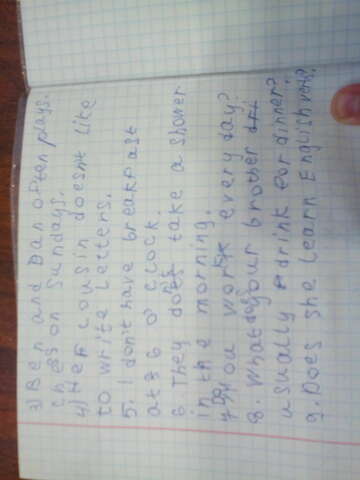 3) Ben and Dan often plays.
chess on Sundays.
4) Her cousin doesnt like
to write letters.
5. I don't have breakfast
at 6 o' clock.
6. They does take a shower
in the morning.
7. Do you work every day?
8. What does your brother
usually drink for dinner?
9. Does she learn English verbs?